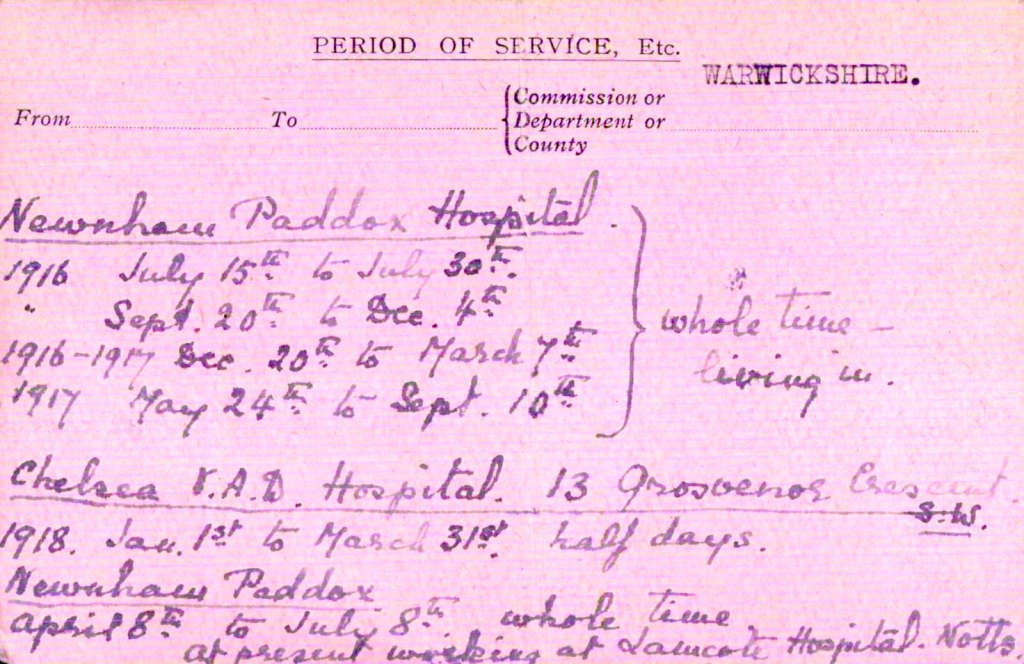 PERIOD OF SERVICE, Etc.
WARWICKSHIRE.
From To Commission or
Department or
County
Newnham Paddox Hospital.
1916 July 15th to July 30th.
" Sept. 20th to Dec. 4th
1916-1917 Dec. 20th to March 7th
1917 May 24th to Sept. 10th
whole time -
living in.
Chelsea V.A.D. Hospital. 13 Grosvenor Crescent.
S.W.
1918. Jan. 1st to March 31st. half days.
Newnham Paddox
April 8th to July 8th whole time
at present working at Lamcote Hospital. Notts.